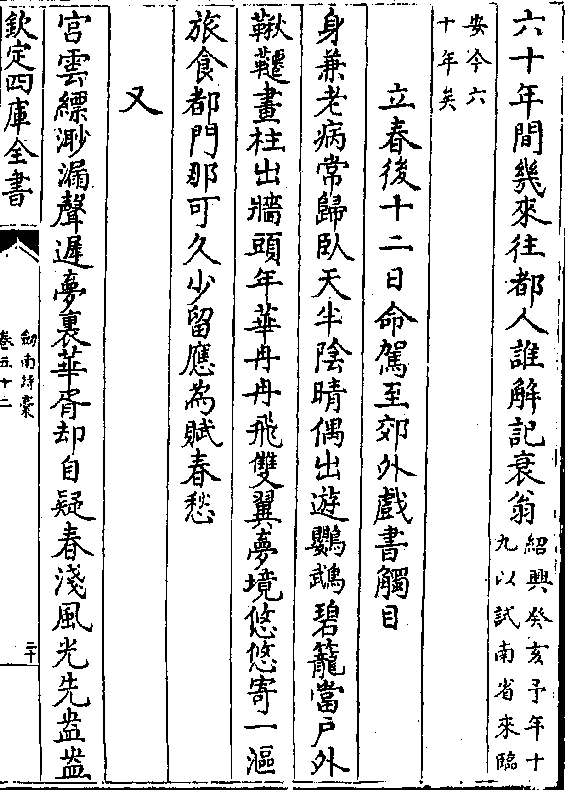 六十年間幾來往都人誰解記衰翁紹興癸亥予年十九以試南省來臨
安今六十年矣
立春後十二日命駕至郊外戲書觸目
身兼老病常歸臥天半陰晴偶出遊鸚鵡碧籠當戶外
鞦韆畫柱出牆頭年華冉冉飛雙翼夢境悠悠寄一漚
旅食都門那可久少留應為賦春愁
又
宮雲縹渺漏聲遲夢裏華胥却自疑春淺風光先盎盎
欽定四庫全書
劒南詩稾
卷五十二
二十